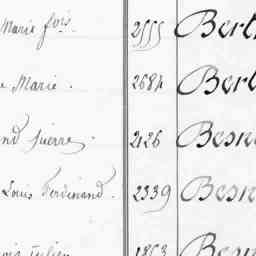 Marie fois. 2555 Bert
e Marie. 2684 Berl
nd pierre. 2126 Besn
Louis Ferdinand. 2339 Besn
ois Julien 1853 Besn